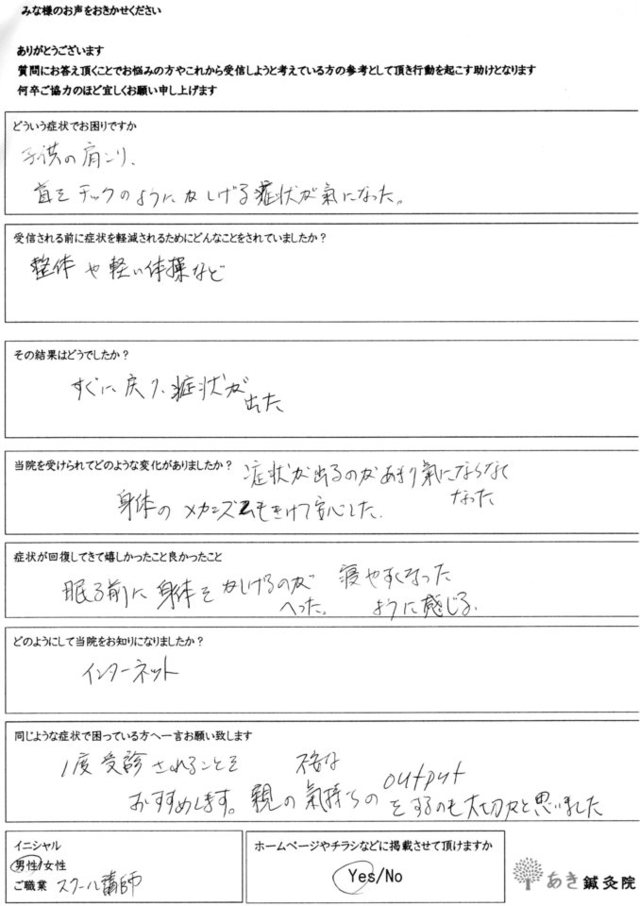 みな様のお声をおきかせください
ありがとうございます
質問にお答え頂くことでお悩みの方やこれから受信しようと考えている方の参考として頂き行動を起こす助けとなります
何卒ご協力のほど宜しくお願い申し上げます
どういう症状でお困りですか
子供の肩こり、
首をチックのようにかしげる症状が氣になった。
受信される前に症状を軽減されるためにどんなことをされていましたか？
整体や軽い体操など
その結果はどうでしたか？
すぐに戻り、症状が
出た
当院を受けられてどのような変化がありましたか？ 症状が出るのがあまり氣にならなく
なった
身体のメカニズムもきけて安心した。
症状が回復してきて嬉しかったこと良かったこと
眠る前に身体をかしげるのが 寝やすくなった
へった。 ように感じる。
どのようにして当院をお知りになりましたか？
インターネット
同じような症状で困っている方へ一言お願い致します
1度受診されることを 不安な
おすすめします。親の氣持ちのoutput
をするのも大切だと思いました
イニシャル
男性/女性
ご職業 スクール講師
ホームページやチラシなどに掲載させて頂けますか
Yes/No
あき鍼灸院